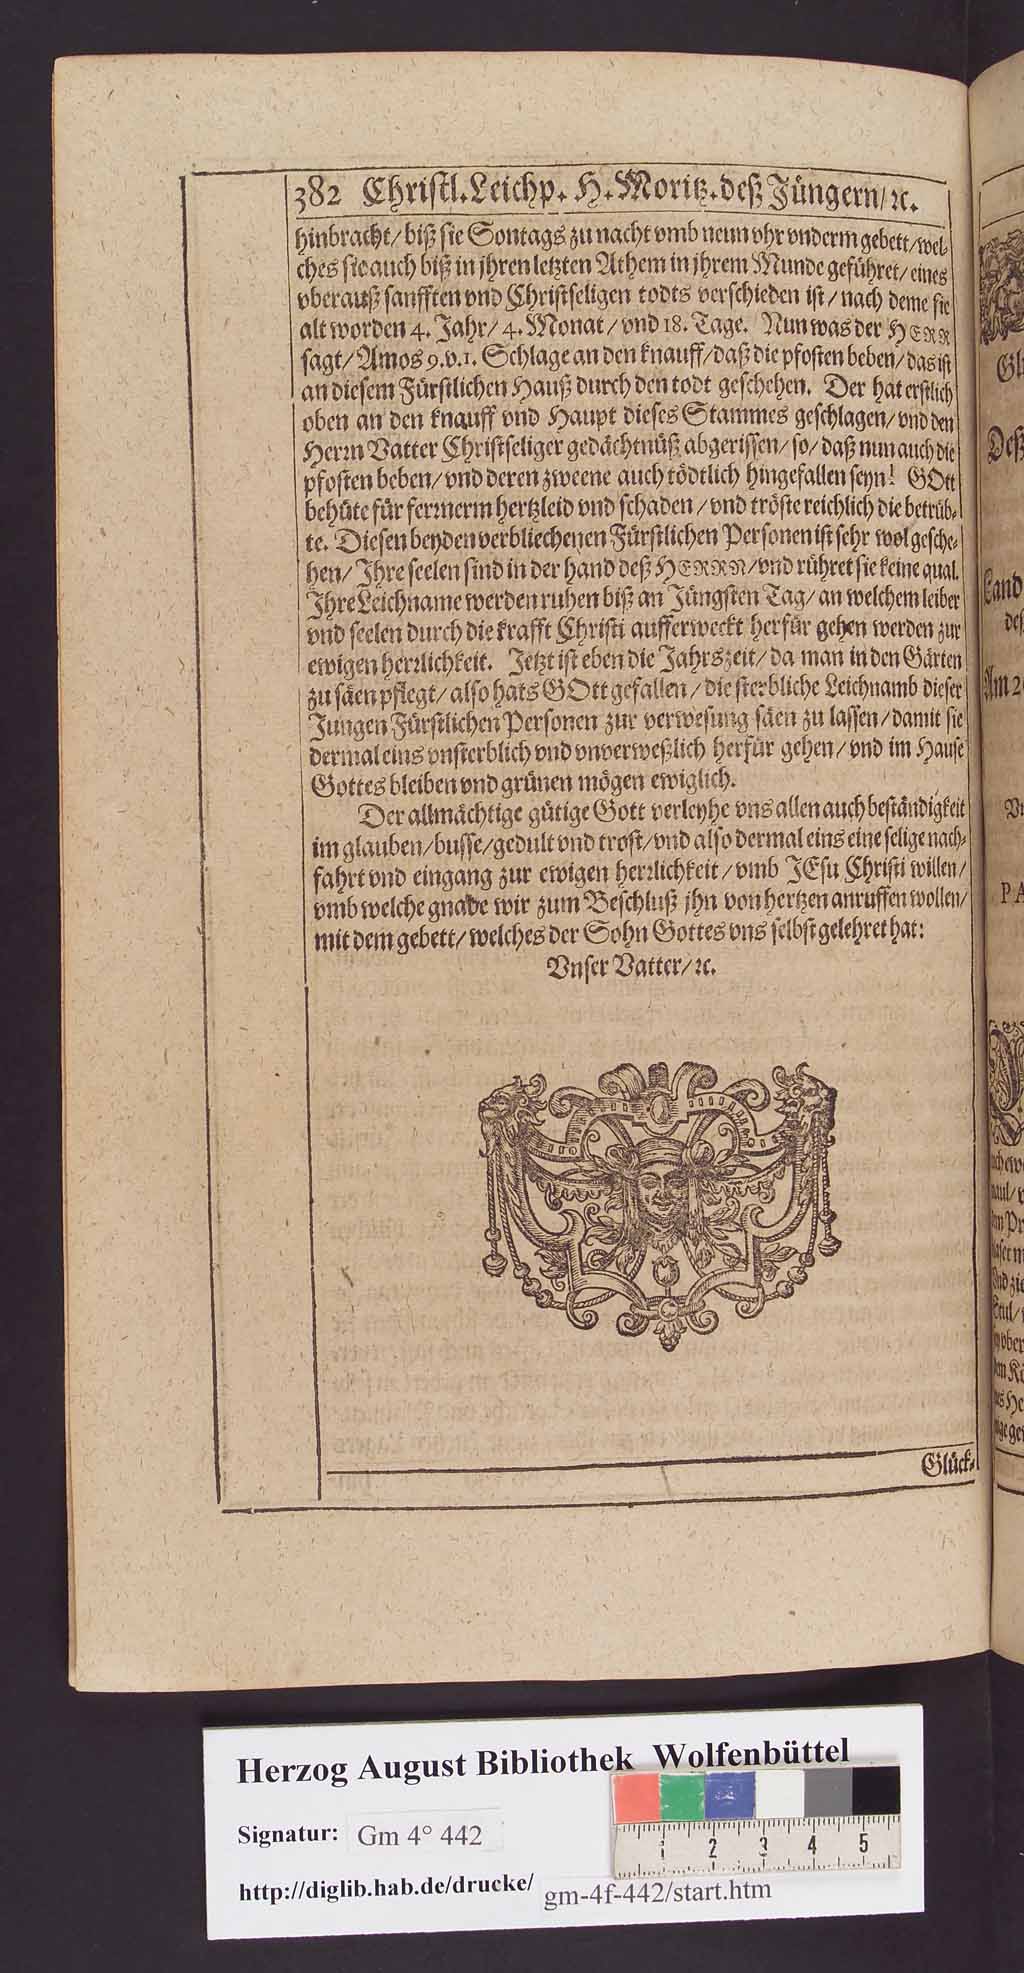 382 Christl. Leichp. H. Moritz. deß Jüngern/ ꝛc.
hinbracht/ biß sie Sontags zu nacht vmb neun vhr vnderm gebett/ wel-
ches sie auch biß in jhren letzten Athem in jhrem Munde geführet/ eines
vberauß sanfften vnd Christseligen todts verschieden ist/ nach deme sie
alt worden 4. Jahr/ 4. Monat/ vnd 18. Tage. Nun was der HERR
sagt/ Amos 9. v. 1. Schlage an den knauff/ daß die pfosten beben/ das ist
an diesem Fürstlichen Hauß durch den todt geschehen. Der hat erstlich
oben an den knauff vnd Haupt dieses Stammes geschlagen/ vnd den
Herrn Vatter Christseliger gedächtnüß abgerissen/ so/ daß nun auch die
pfosten beben/ vnd deren zweene auch tödtlich hingefallen seyn! GOtt
behüte für fernerm hertzleid vnd schaden/ vnd tröste reichlich die betrüb-
te. Diesen beyden verbliechenen Fürstlichen Personen ist sehr wol gesche-
hen/ Ihre seelen sind in der hand deß HERRN/ vnd rühret sie keine qual.
Ihre Leichname werden ruhen biß an Jüngsten Tag/ an welchem leiber
vnd seelen durch die krafft Christi aufferweckt herfür gehen werden zur
ewigen herrlichkeit. Jetzt ist eben die Jahrszeit/ da man in den Gärten
zu säen pflegt/ also hats GOtt gefallen/ die sterbliche Leichnamb dieser
Jungen Fürstlichen Personen zur verwesung säen zu lassen/ damit sie
dermal eins vnsterblich vnd vnverweßlich herfür gehen/ vnd im Hause
Gottes bleiben vnd grünen mögen ewiglich.
Der allmächtige gütige Gott verleyhe vns allen auch beständigkeit
im glauben/ busse/ gedult vnd trost/ vnd also dermal eins eine selige nach-
fahrt vnd eingang zur ewigen herrlichkeit/ vmb JEsu Christi willen/
vmb welche gnade wir zum Beschluß jhn von hertzen anruffen wollen/
mit dem gebett/ welches der Sohn Gottes vns selbst gelehret hat:
Vnser Vatter/ ꝛc.
Glück-
Herzog August Bibliothek Wolfenbüttel
Signatur: Gm 4° 442
http://diglib.hab.de/drucke/ gm-4f-442/start.htm
1 2 3 4 5